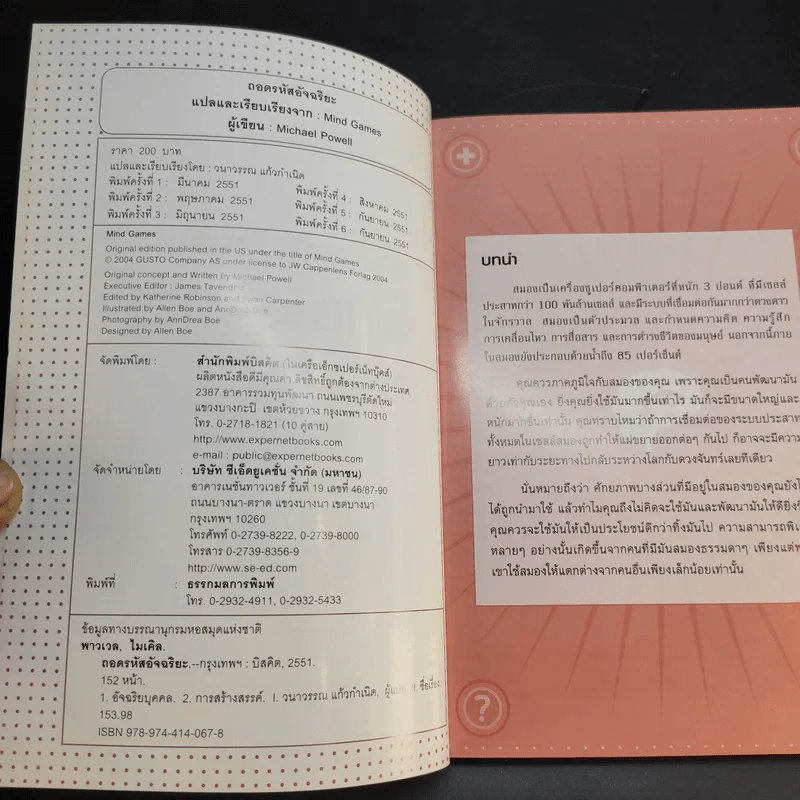 ถอดรหัสอัจฉริยะ
แปลและเรียบเรียงจาก : Mind Games
ผู้เขียน : Michael Powell
ราคา 200 บาท
แปลและเรียบเรียงโดย : วนาวรรณ แก้วกำเนิด
พิมพ์ครั้งที่ 1 : มีนาคม 2551 พิมพ์ครั้งที่ 4 : สิงหาคม 2551
พิมพ์ครั้งที่ 2 : พฤษภาคม 2551 พิมพ์ครั้งที่ 5 : กันยายน 2551
พิมพ์ครั้งที่ 3 : มิถุนายน 2551 พิมพ์ครั้งที่ 6 : กันยายน 2551
Mind Games
Original edition published in the US under the title of Mind Games
© 2004 GUSTO Company AS under license to JW Cappeniens Forlag 2004
Original concept and Written by Michael Powell
Executive Editor : James Tavendale
Edited by Katherine Robinson and Carpenter
Illustrated by Allen Boe and AnnDrea Boe
Photography by AnnDrea Boe
Designed by Allen Boe
จัดพิมพ์โดย : สำนักพิมพ์บิสคิต (ในเครือเอ็กซเปอร์เน็ทบุ๊คส์)
ผลิตหนังสือดีมีคุณค่า ลิขสิทธิ์ถูกต้องจากต่างประเทศ
2387 อาคารรวมทุนพัฒนา ถนนเพชรบุรีตัดใหม่
แขวงบางกะปิ เขตห้วยขวาง กรุงเทพฯ 10310
โทร. 0-2718-1821 (10 คู่สาย)
http://www.expernetbooks.com
e-mail : public@expernetbooks.com
จัดจำหน่ายโดย : บริษัท ซีเอ็ดยูเคชั่น จำกัด (มหาชน)
อาคารเนชั่นทาวเวอร์ ชั้นที่ 19 เลขที่ 46/87-90
ถนนบางนา-ตราด แขวงบางนา เขตบางนา
กรุงเทพฯ 10260
โทรศัพท์ 0-2739-8222, 0-2739-8000
โทรสาร 0-2739-8356-9
http://www.se-ed.com
พิมพ์ที่ : ธรรกมลการพิมพ์
โทร. 0-2932-4911, 0-2932-5433
ข้อมูลทางบรรณานุกรมหอสมุดแห่งชาติ
พาวเวล, ไมเคิล.
ถอดรหัสอัจฉริยะ.--กรุงเทพฯ : บิสคิต, 2551.
152 หน้า.
1. อัจฉริยบุคคล. 2. การสร้างสรรค์. I. วนาวรรณ แก้วกำเนิด, ผู้แปล. II. ชื่อเรื่อง.
153.98
ISBN 978-974-414-067-8
บทนำ
สมองเป็นเครื่องซูเปอร์คอมพิวเตอร์ที่หนัก 3 ปอนด์ ที่มีเซลล์
ประสาทกว่า 100 พันล้านเซลล์ และมีระบบที่เชื่อมต่อกันมากกว่าดวงดาว
ในจักรวาล สมองเป็นตัวประมวล และกำหนดความคิด ความรู้สึก
การเคลื่อนไหว การสื่อสาร และการดำรงชีวิตของมนุษย์ นอกจากนี้ภาย
ในสมองยังประกอบด้วยน้ำถึง 85 เปอร์เซ็นต์
คุณควรภาคภูมิใจกับสมองของคุณ เพราะคุณเป็นคนพัฒนามัน
ด้วยตัวคุณเอง ยิ่งคุณยิ่งใช้มันมากขึ้นเท่าไร มันก็จะมีขนาดใหญ่และ
หนักมากขึ้นเท่านั้น คุณทราบไหมว่าถ้าการเชื่อมต่อของระบบประสาท
ทั้งหมดในเซลล์สมองถูกทำให้แผ่ขยายออกต่อๆ กันไป ก็อาจจะมีความ
ยาวเท่ากับระยะทางไปกลับระหว่างโลกกับดวงจันทร์เลยทีเดียว
นั่นหมายถึงว่า ศักยภาพบางส่วนที่มีอยู่ในสมองของคุณยังไ
ได้ถูกนำมาใช้ แล้วทำไมคุณถึงไม่คิดจะใช้มันและพัฒนามันให้ดียิ่ง
คุณควรจะใช้มันให้เป็นประโยชน์ดีกว่าทิ้งมันไป ความสามารถพิเ
หลายๆ อย่างนั้นเกิดขึ้นจากคนที่มีมันสมองธรรมดาๆ เพียงแต่พ
เขาใช้สมองให้แตกต่างจากคนอื่นเพียงเล็กน้อยเท่านั้น